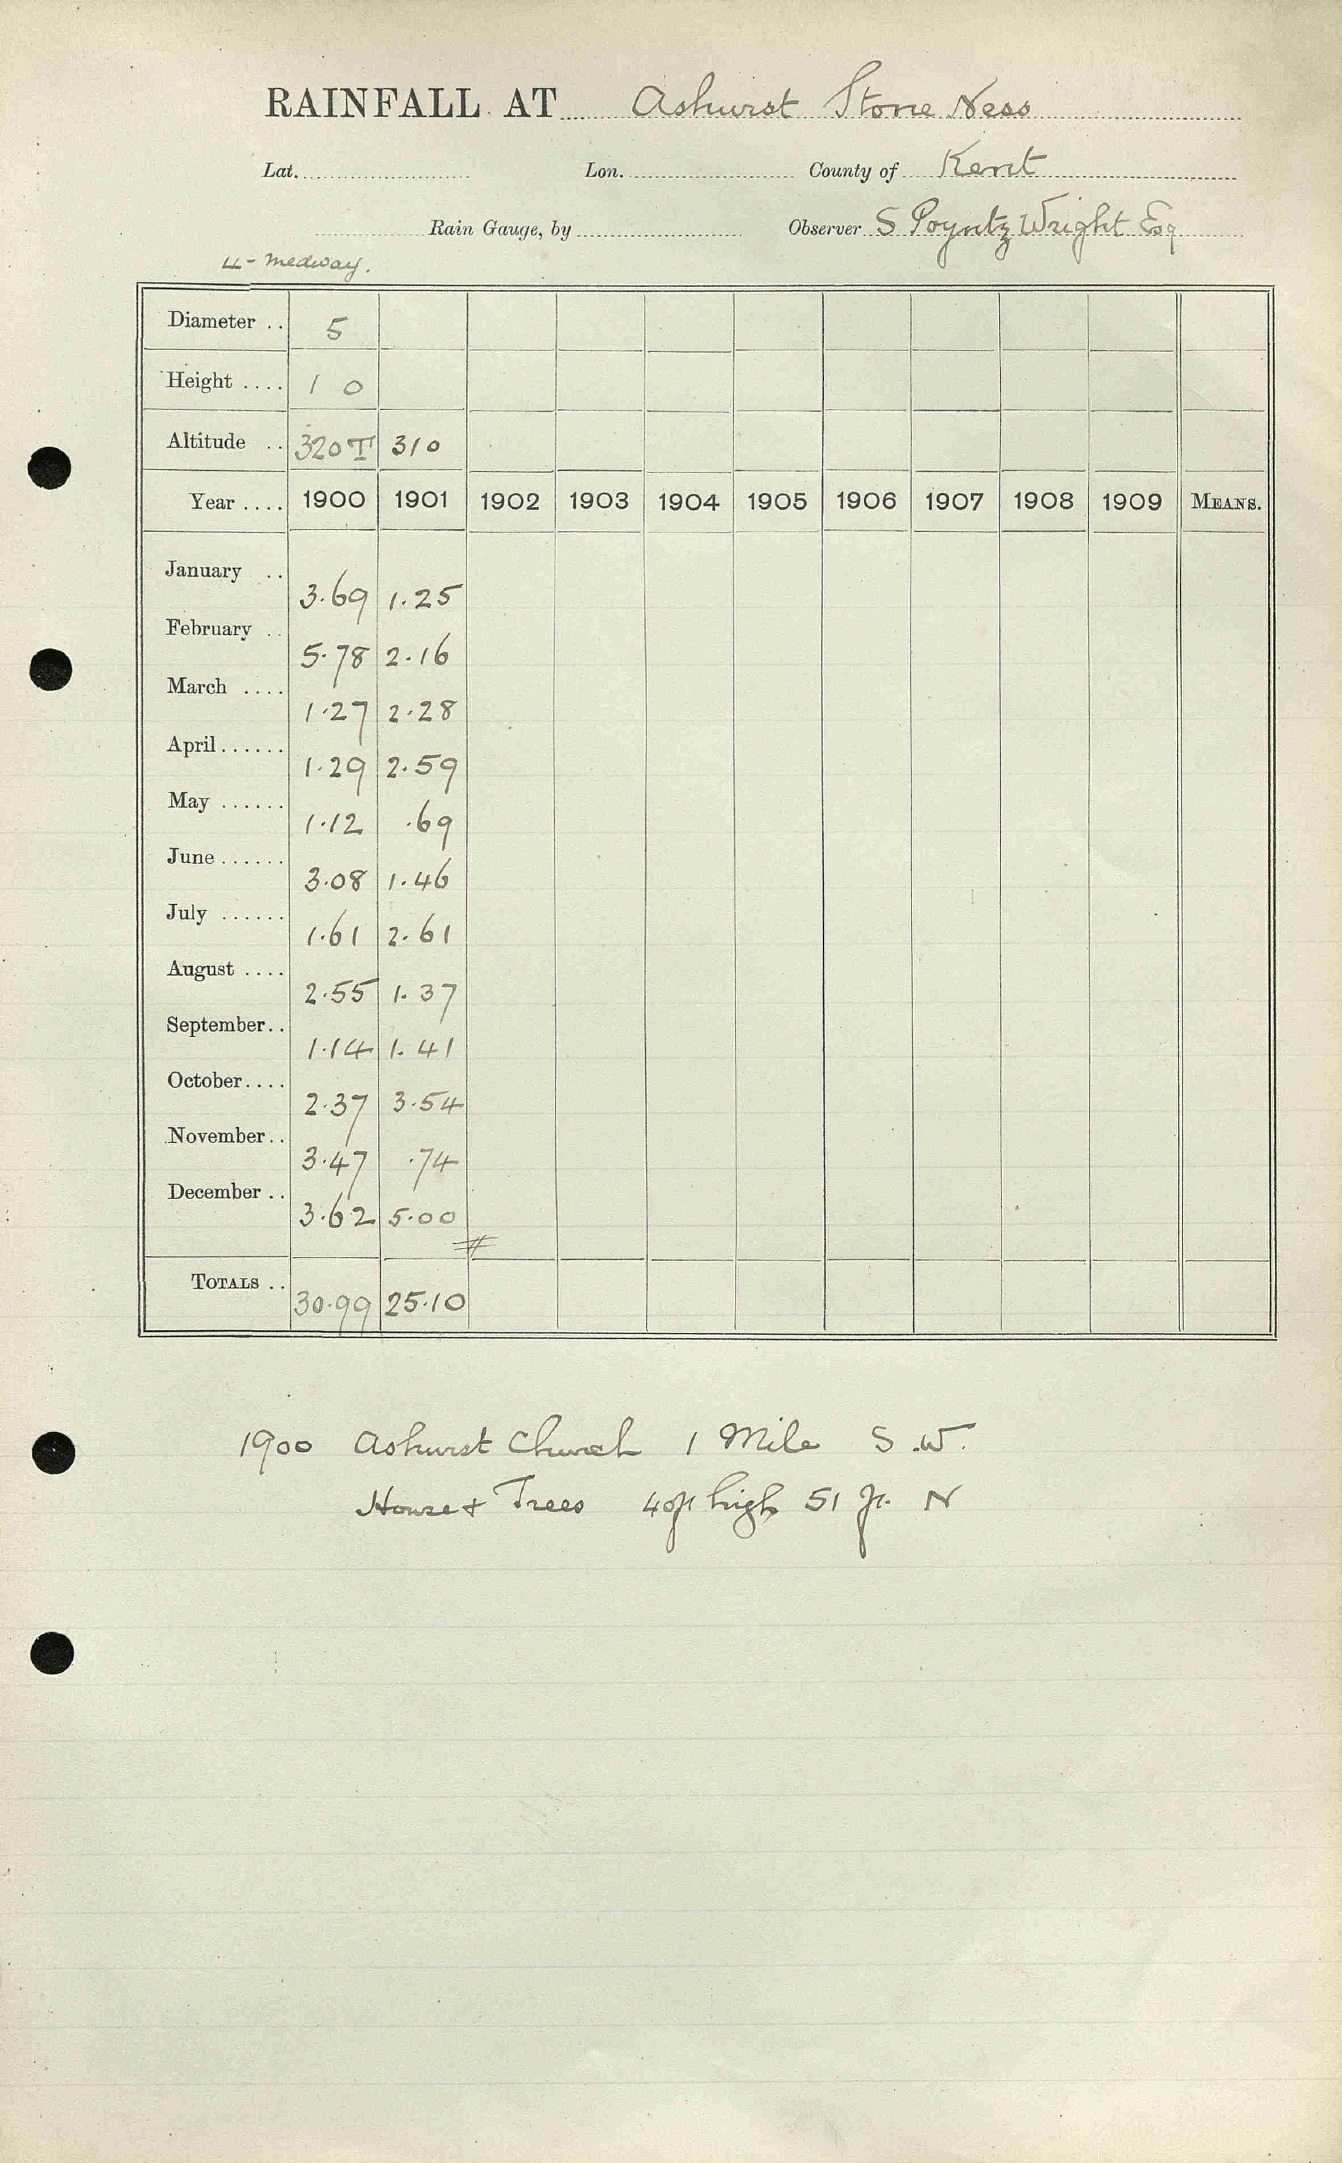 RAINFALL AT Ashurst Stone Ness
Lat. Lon. County of Kent
Rain Gauge, by Observer S Poyntz Wright Esq
4 - Medway.
Diameter .. 5
Height .... 1 0
Altitude .. 320 T 310
Year .... 1900 1901 1902 1903 1904 1905 1906 1907 1908 1909 MEANS.
January .. 3.69 1.25
February .. 5.78 2.16
March .... 1.27 2.28
April...... 1.29 2.59
May ...... 1.12 .69
June...... 3.08 1.46
July ...... 1.61 2.61
August .... 2.55 1.37
September.. 1.14 1.41
October.... 2.37 3.54
November.. 3.47 .74
December .. 3.62 5.00
TOTALS .. 30.99 25.10
1900 Ashurst Church 1 Mile S.W.
House & Trees 40ft high 51 ft. N